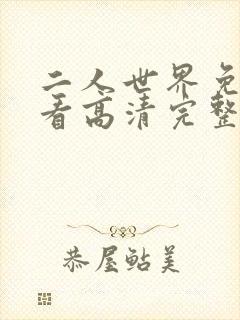 二人世界免
看高清完整
恭屋鲇美